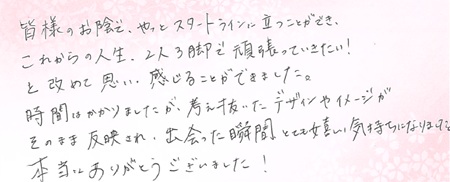 皆様のお陰で、やっとスタートラインに立つことができ、
これからの人生、2人3脚で頑張っていきたい!
と改めて思い、感じることができました。
時間はかかりましたが、考え抜いたデザインやイメージが
そのまま反映され、出会った瞬間、とても嬉しい気持ちになりました。
本当にありがとうございました!